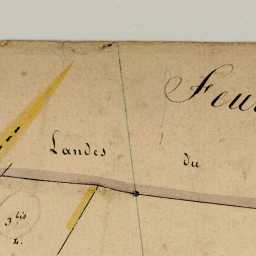 Feui
Landes du
3 bis
2.